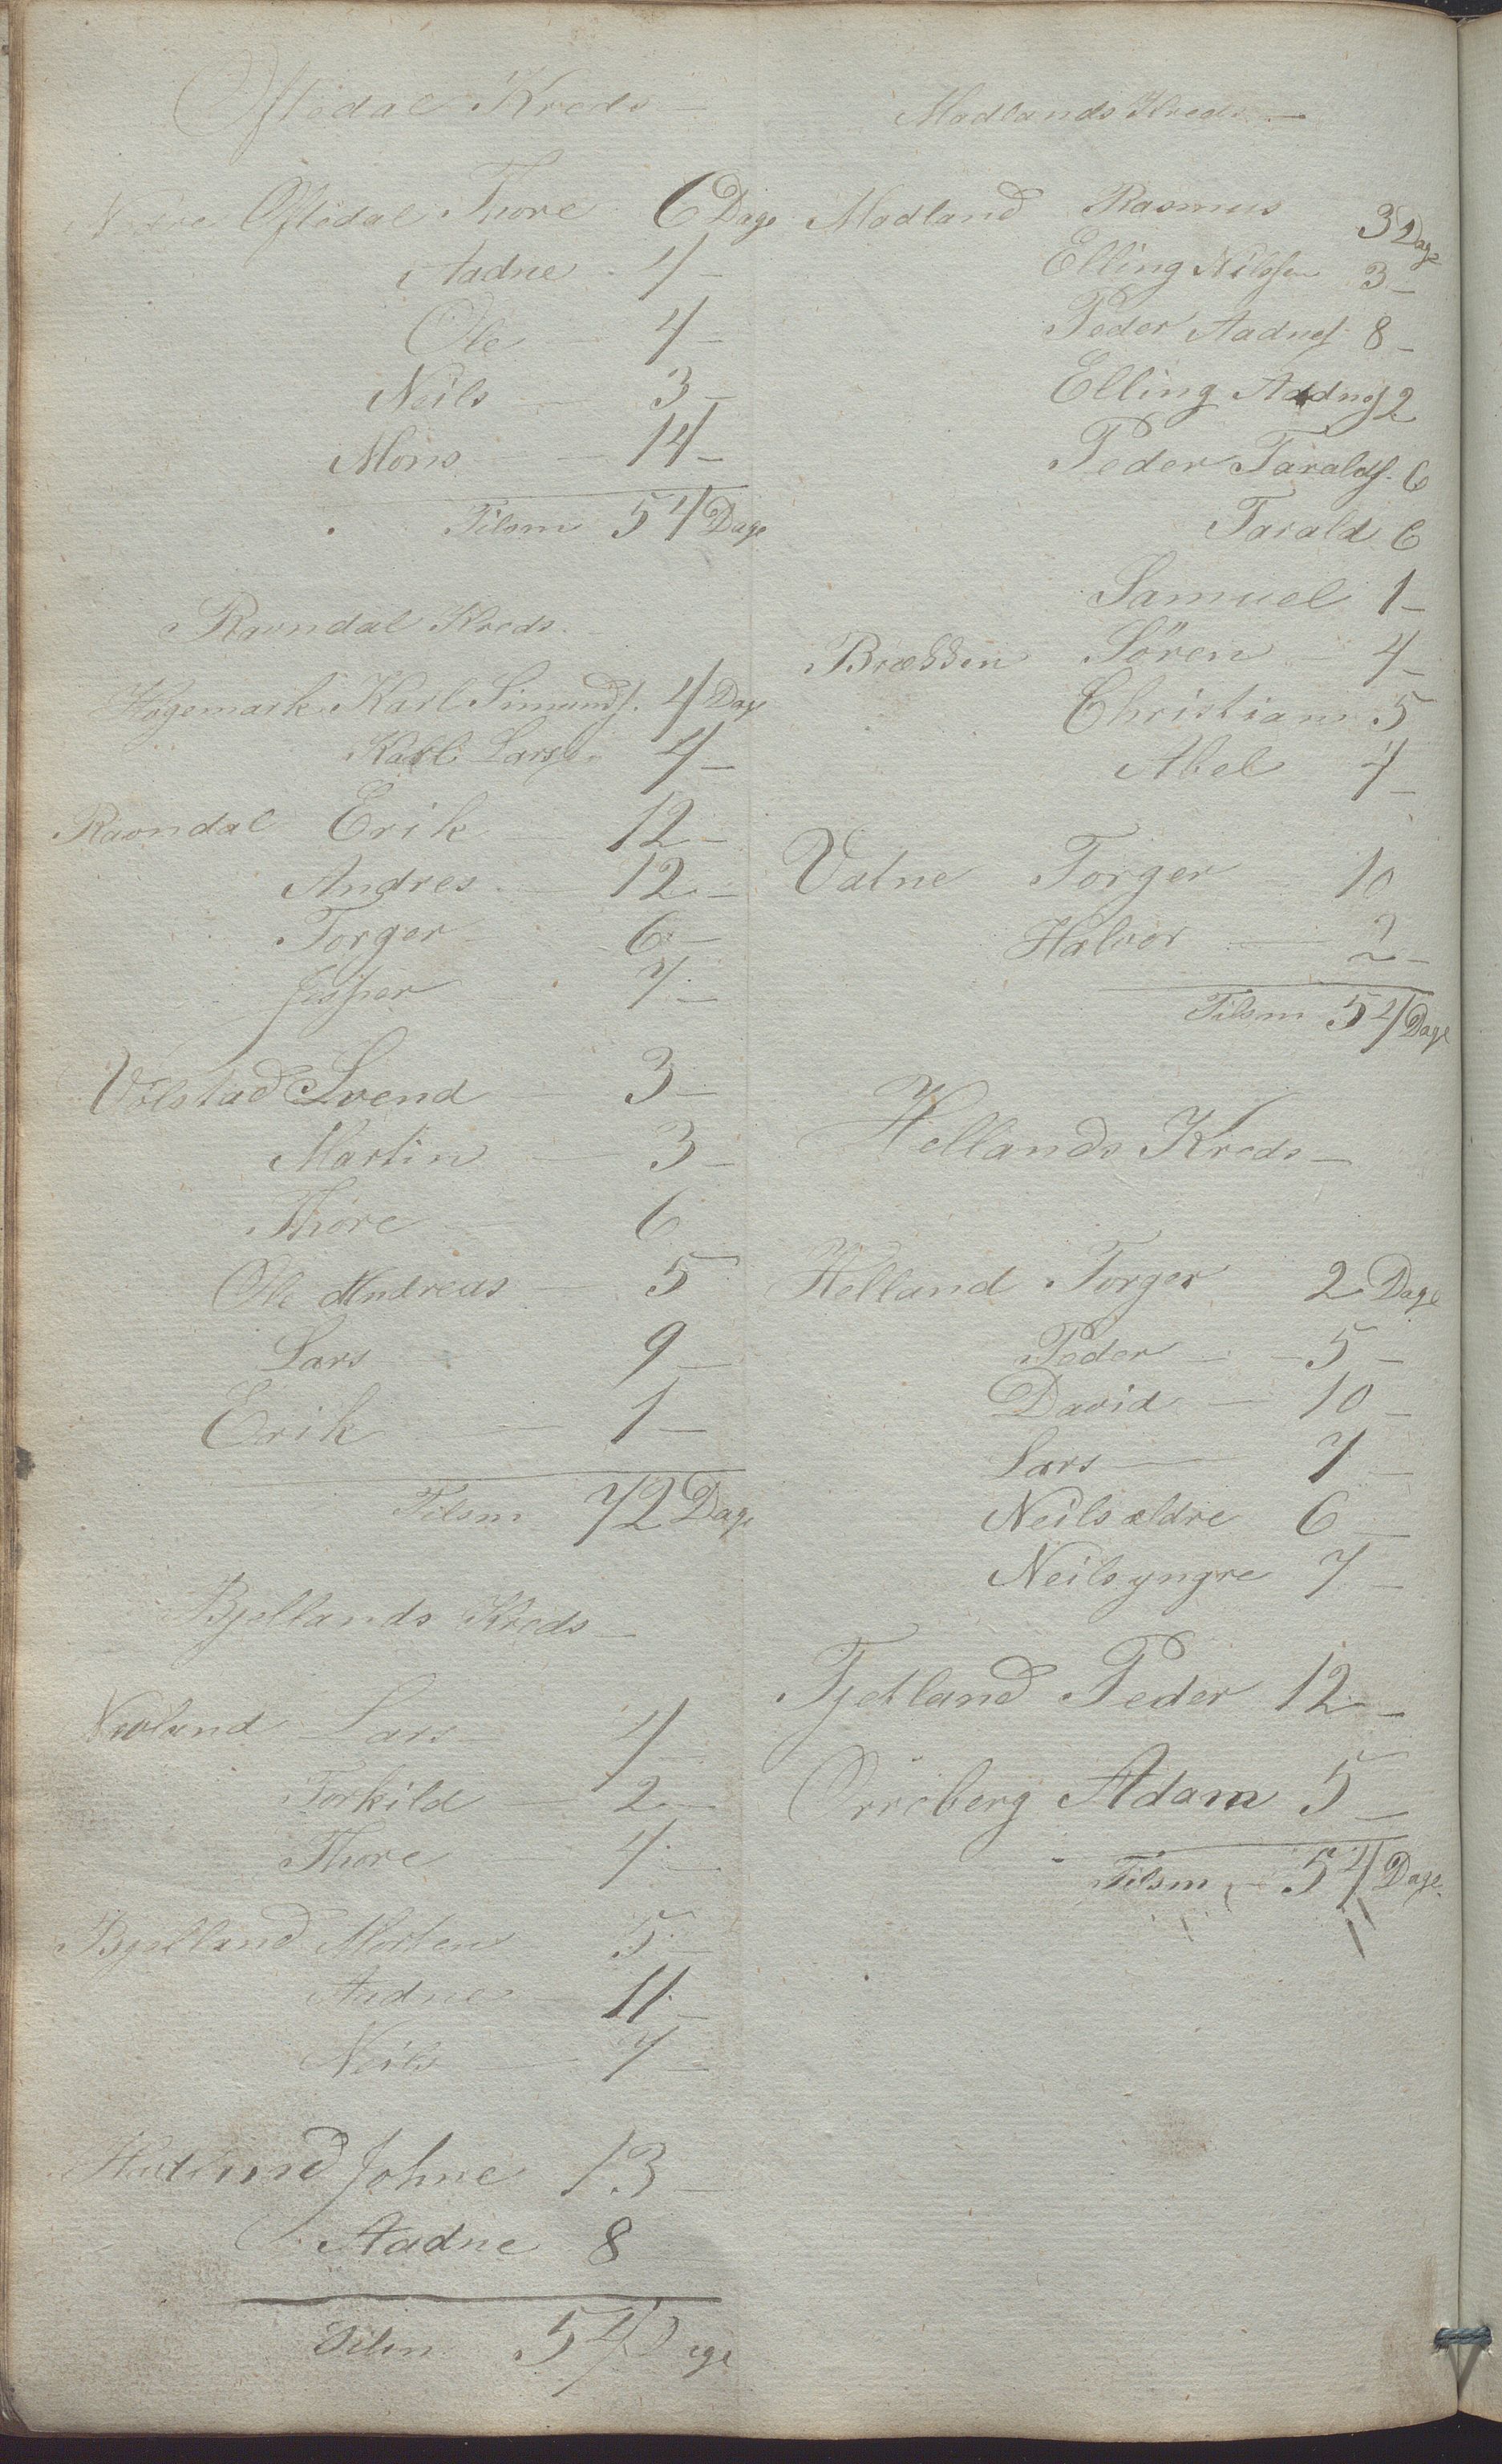 Oftedal Kreds —
Nedre Oftedal Thore 6 Dage
Aadne 4 —
Ole 4 —
Neils — 3 —
Mons — — 14 —
Tilsm 54 Dage
Ravndal Kreds. —
Hogemark Karl Simunds. 4 Dage
Karl Larss. 4 —
Ravndal Erik — 12 —
Andres — 12 —
Torger — 6 —
Jesper — 7 —
Volstad Svend — 3 —
Martin — 3 —
Thore — 6
Ole Andreas — 5
Lars — 9 —
Erik — 1 —
Tilsm 72 Dage
Bjellands Kreds —
Lars — 4 —
Torkild — 2 —
Thore — 4 —
Bjelland Morten 5 —
Aadne — 11 —
Neils — 7 —
Johne 13 —
Aadne 8
Tilsm 54 Dage
Madlands Kreds —
Madland Rasmus 3 Dage
Elling Nilssen 3 —
Peder Aadnes. 8 —
Elling Aadnes. 2
Peder Taralds. 6
Tarald 6
Samuel 1 —
Brækken Sören 4 —
Christian 5
Abel 4 —
Vatne Torger — 10
Halvor — 2 —
Tilsm 54 Dage
Hellands Kreds —
Helland Torger 2 Dage
Peder — — 5 —
David — 10 —
Lars — 7 —
Neils ældre 6 —
Neils yngre 7 —
Tjetland Peder 12 —
Orreberg Adam 5 —
Tilsm — 54 Dage